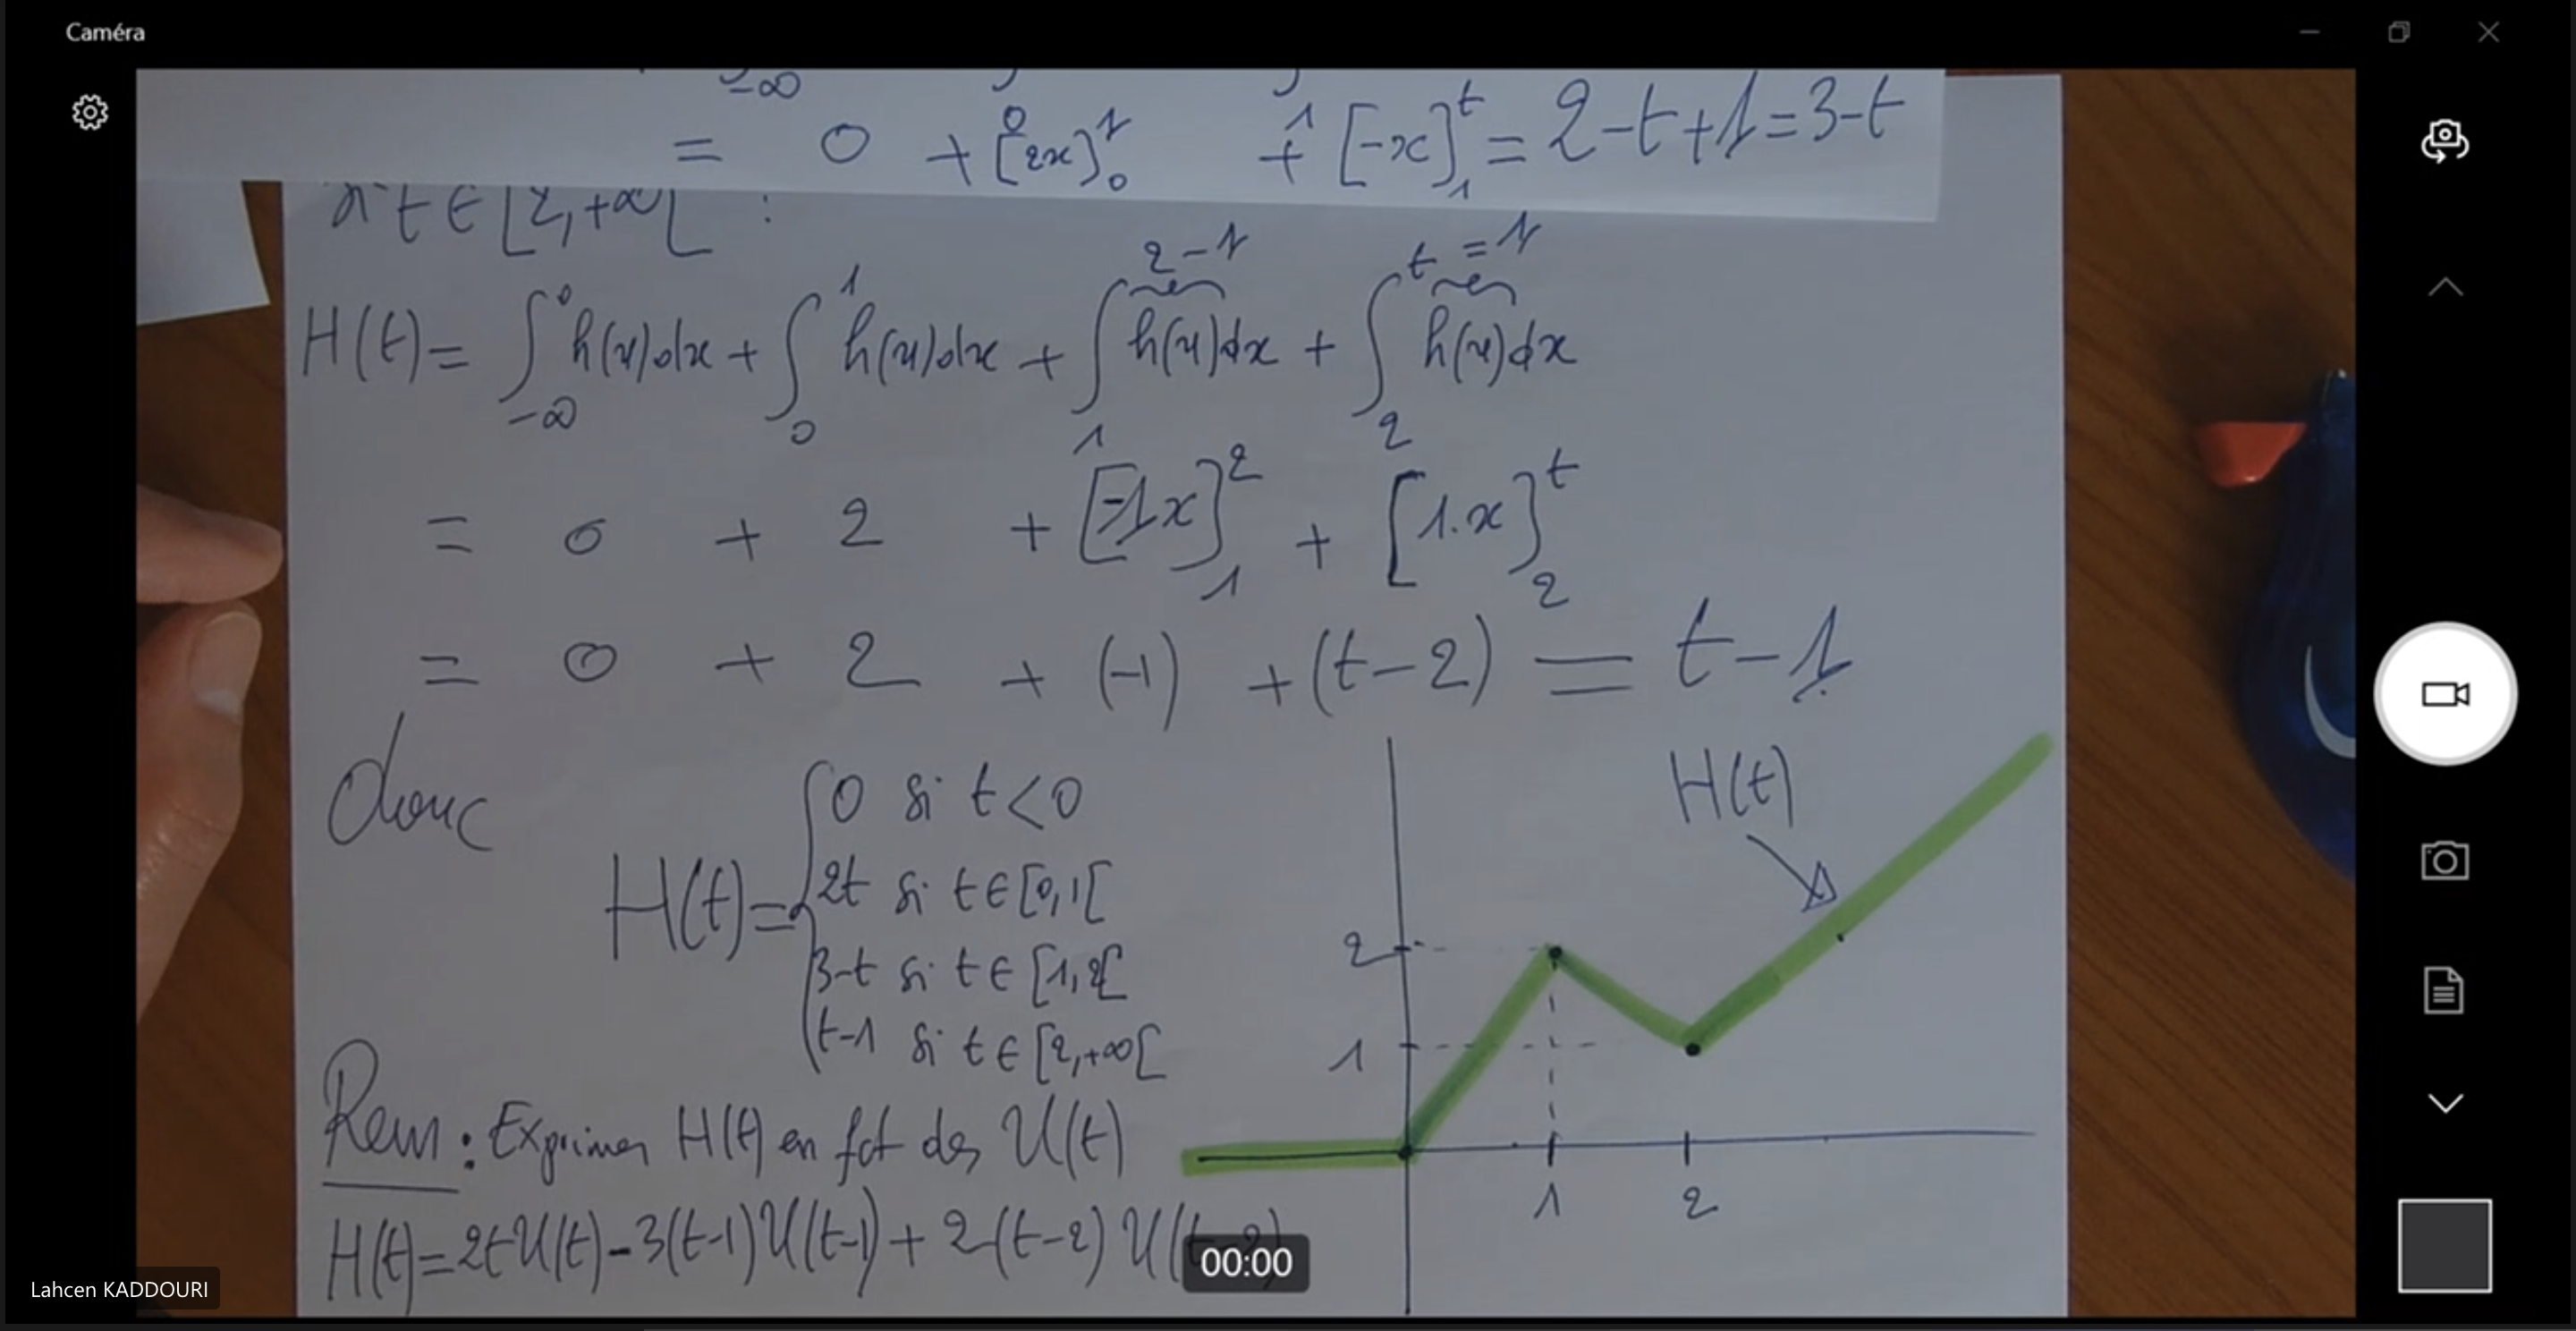 Caméra
-∞
= 0 + [2x]₀¹ + [-x]₁ᵗ = 2-t+1=3-t
t ∈ [2,+∞[ :
2-1 t =1
H(t)= ∫_{-∞}^{0} h(x)dx + ∫_{0}^{1} h(x)dx + ∫_{1} h(x)dx + ∫_{2}^{t} h(x)dx
= 0 + 2 + [-1x]₁² + [1.x]₂ᵗ
= 0 + 2 + (-1) + (t-2) = t-1
donc
H(t)=
0 si t<0
2t si t∈[0,1[
3-t si t∈[1,2[
t-1 si t∈[2,+∞[
H(t)
2
1
1 2
Rem : Exprimer H(t) en fct des U(t)
H(t)=2tU(t)-3(t-1)U(t-1)+2(t-2)U(t-2)
00:00
Lahcen KADDOURI